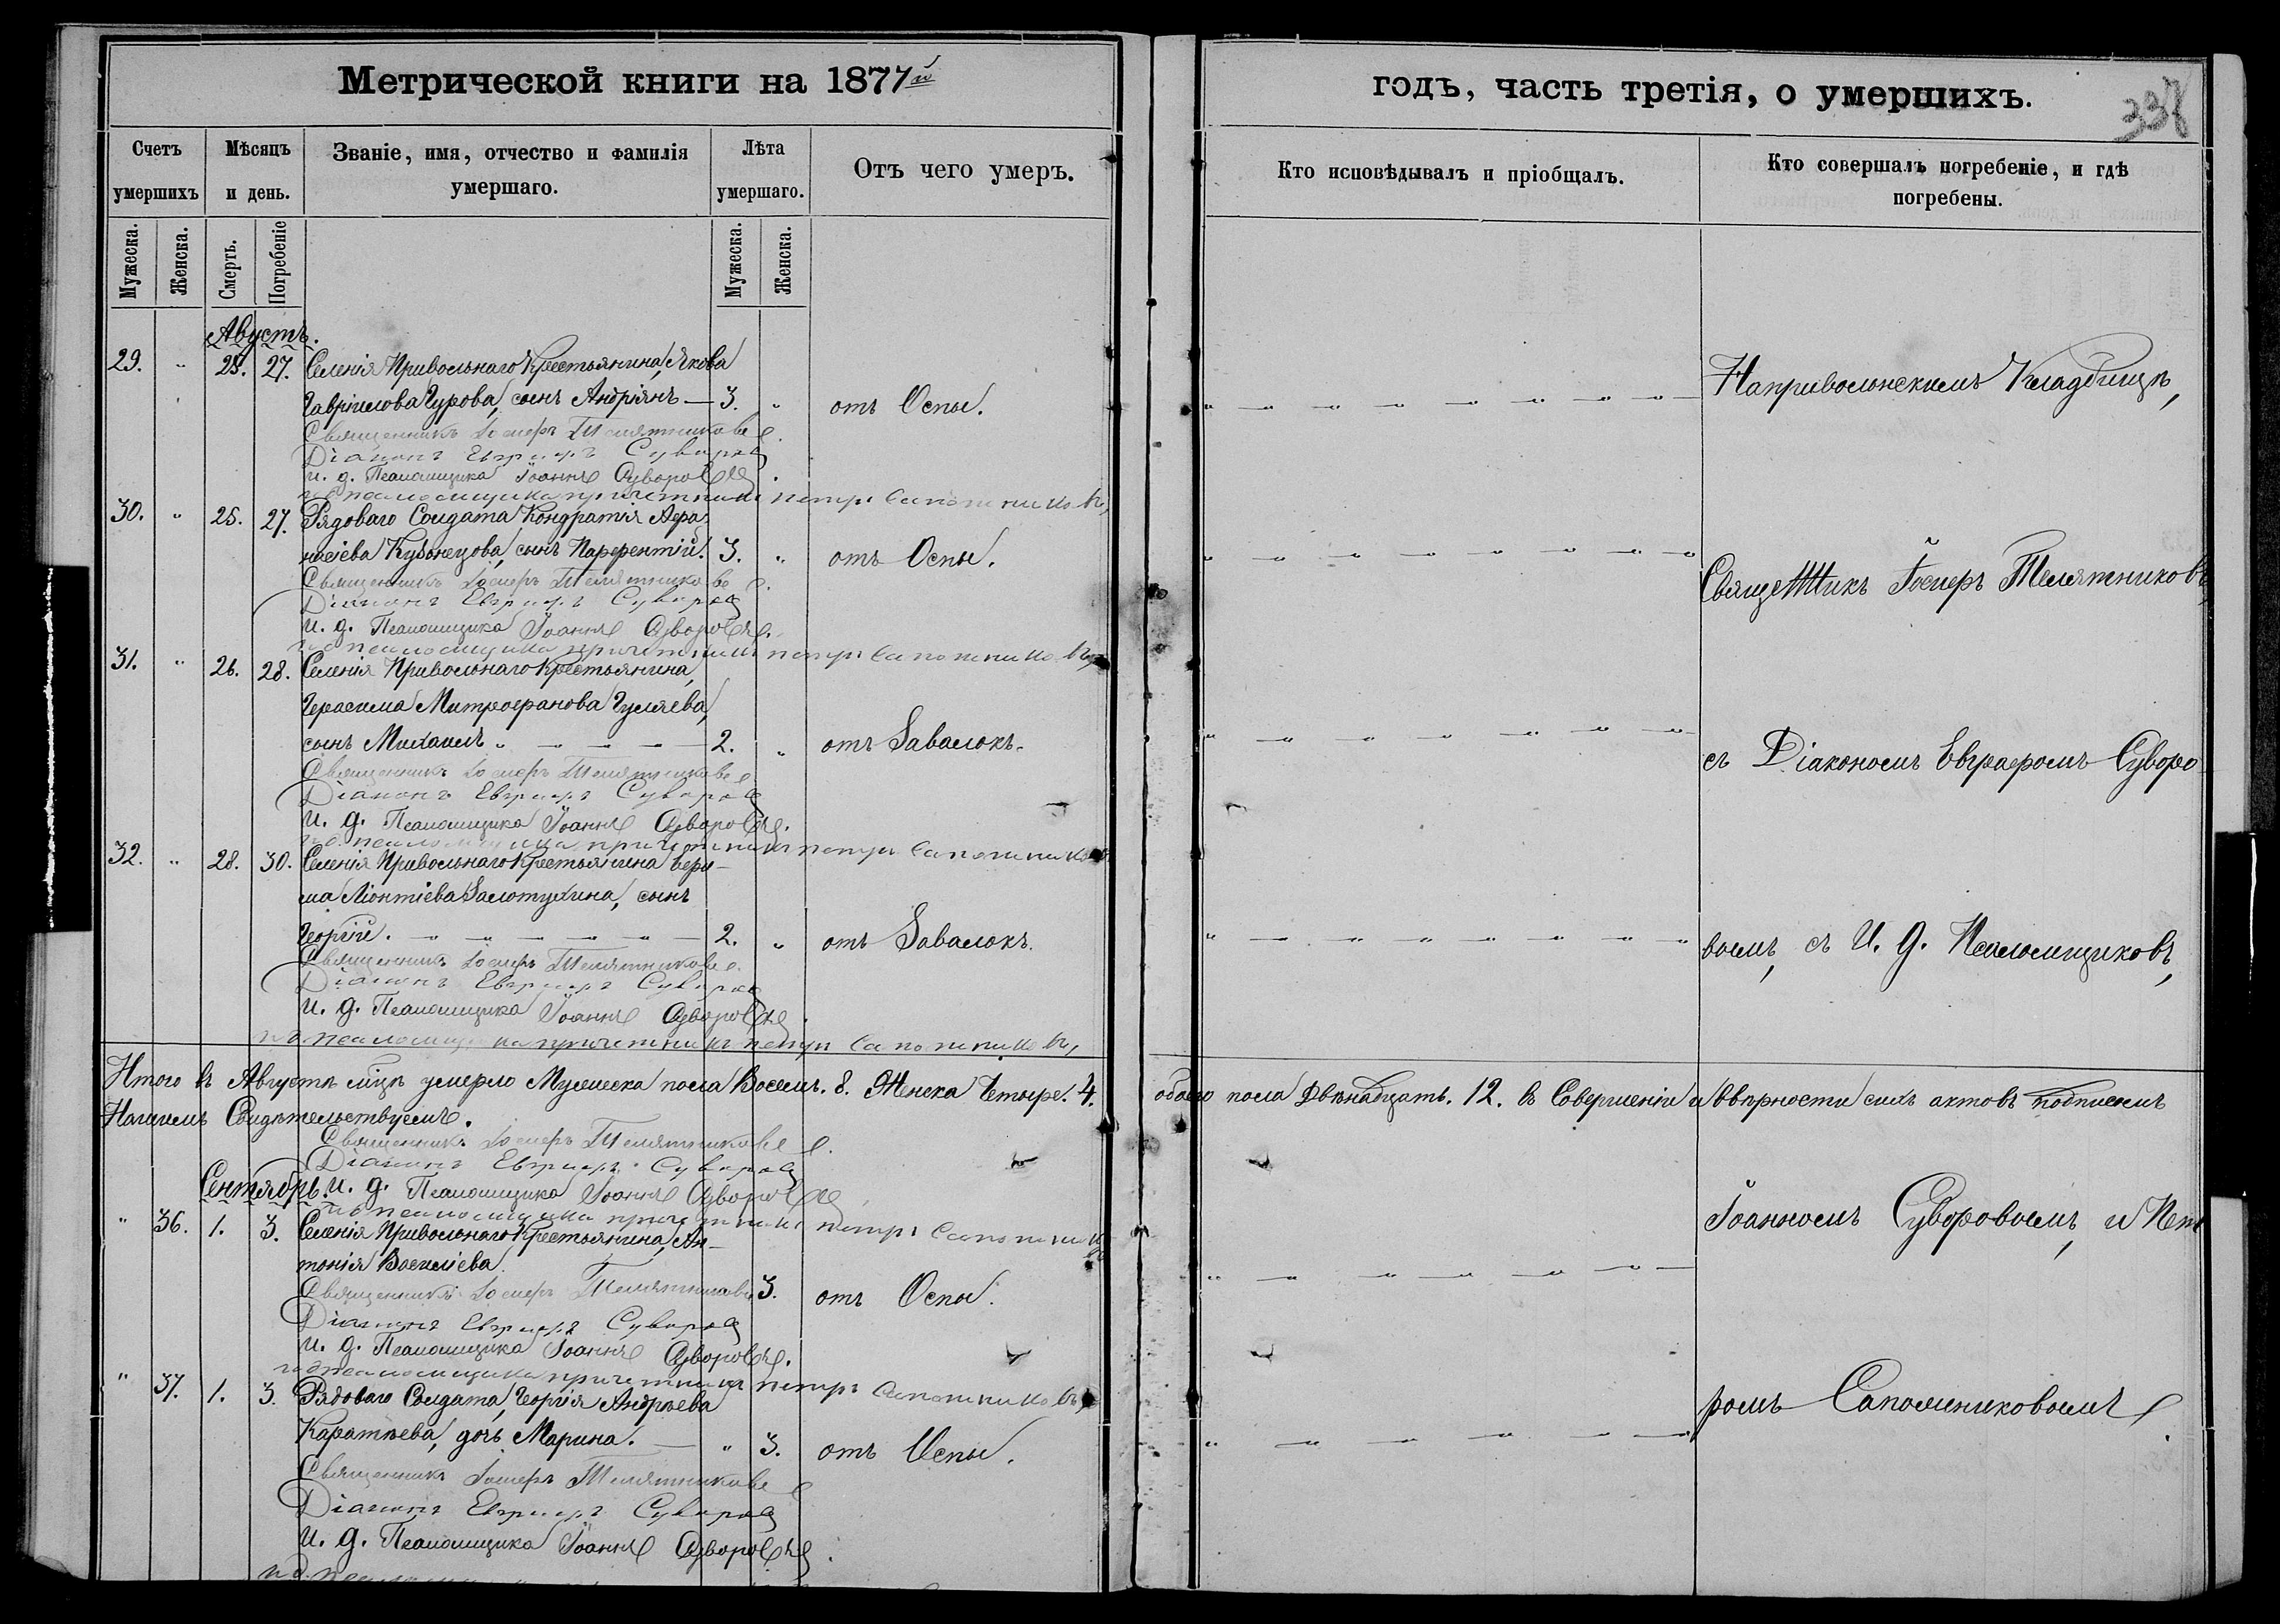 Метрической книги на 1877й
годъ, часть третія, о умершихъ.
338
Счетъ умершихъ
Мѣсяцъ и день.
Званіе, имя, отчество и фамилія умершаго.
Лѣта умершаго.
Отъ чего умеръ.
Кто исповѣдывалъ и пріобщалъ.
Кто совершалъ погребеніе, и гдѣ погребены.
Мужеска. Женска. Смерть. Погребеніе Мужеска. Женска.
Августъ.
29. " 25. 27. Селенія Привольнаго Крестьянина, Якова
Гавріилова Гурова, сынъ Андріянъ — 3. " отъ Оспы.
Священникъ Іосифъ Телятниковъ
Діаконъ Евграфъ Суворов
И. д. Псаломщика Іоаннъ Суворовъ.
и д псаломщика причетникъ петръ Сапожниковъ,
30. " 25. 27. Рядоваго Солдата, Кондратія Афа-
насіева Кубонецова, сынъ Парфентій. 3. " отъ Оспы.
Священникъ Іосифъ Телятниковъ
Діаконъ Евграфъ Суворов
И. д. Псаломщика Іоаннъ Суворовъ.
и д псаломщика причетникъ петръ Сапожниковъ,
31. " 26. 28. Селенія Привольнаго Крестьянина,
Герасима Митрофанова Гуляева,
сынъ Михаилъ " — 2. " отъ Завалокъ.
Священникъ Іосифъ Телятниковъ
Діаконъ Евграфъ Суворов
И. д. Псаломщика Іоаннъ Суворовъ.
и д. псаломщика причетникъ петръ Сапожников
32. " 28. 30. Селенія Привольнаго Крестьянина
ма Ліонтіева Залотухина, сынъ
Георгій. — 2. " отъ Завалокъ.
Священникъ Іосифъ Телятниковъ
Діаконъ Евграфъ Суворов
И. д. Псаломщика Іоаннъ Суворовъ.
и д. псаломщика причетникъ петръ Сапожниковъ,
Итого въ Августѣ мцѣ умерло Мужеска пола Восемь. 8. Женска Четыре. 4. обоего пола Двѣнадцать. 12. въ Совершеніи и Ввѣрности сихъ актовъ подписомъ
Нашимъ Свидѣтельствуемъ.
Священникъ Іосифъ Телятниковъ
Діаконъ Евграфъ Суворов
Сентябрь. И. д. Псаломщика Іоаннъ Суворовъ
и д псаломщика причетникъ петръ Сапожников
" 36. 1. 3. Селенія Привольнаго Крестьянина, Ан-
тонія Василіева.
Священникъ Іосифъ Телятниковъ 3. отъ Оспы.
Діаконъ Евграфъ Суворов
И. д. Псаломщика Іоаннъ Суворовъ.
и д псаломщика причетникъ петръ Сапожниковъ,
" 37. 1. 3. Рядоваго Солдата, Георгія Андрѣева
Каратѣева, дочь Марина. — " 3. отъ Оспы.
Священникъ Іосифъ Телятниковъ
Діаконъ Евграфъ Суворов
И. д. Псаломщика Іоаннъ Суворовъ.
На привольнскимъ Кладбищѣ,
Священникъ Іосифъ Телятниковъ,
съ Діакономъ Евграфомъ Суворо
вымъ, съ И. д. Псаломщиковъ,
Іоанномъ Суворовымъ, и Пет
ромъ Сапожниковымъ.